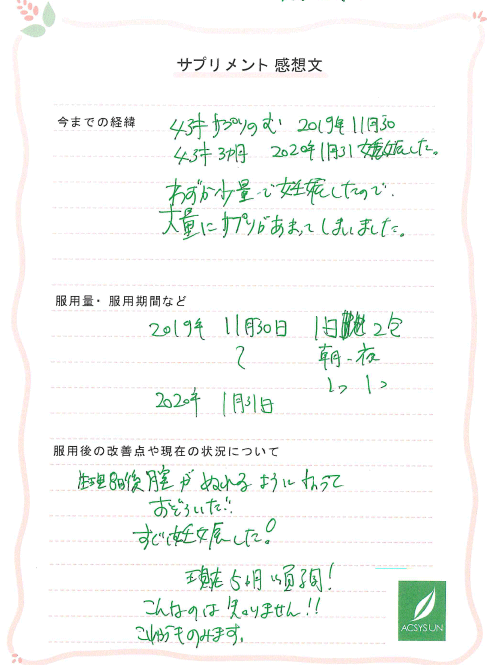 サプリメント 感想文
今までの経緯
43才 サプリのむ 2019年11月30
43才 3ヶ月 2020年1月31 妊娠した。
わずか少量で妊娠したので、
大量にサプリがあまってしまいました。
服用量・服用期間など
2019年 11月30日 1日 2包
〜 朝-夜
1つ 1つ
2020年 1月31日
服用後の改善点や現在の状況について
生理後膣がぬれるようになって
おどろいた!!
すぐに妊娠した!
現在5ヶ月 順調!
こんなのは 知りません!!
こんなのは
のみます。
ACSYSUN